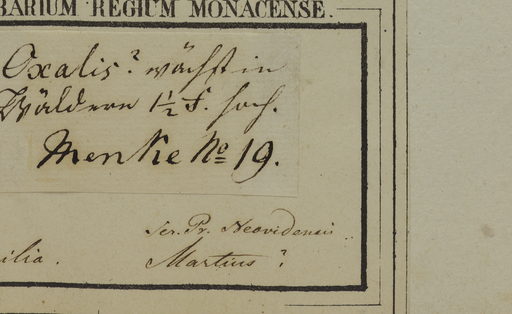 BARIUM REGIUM MONACENSE.
Oxalis? wächst in
Wäldern 1½ F. hoch.
Menke No 19.
Ser. Pr. Neovidensis
ilia. Martius?